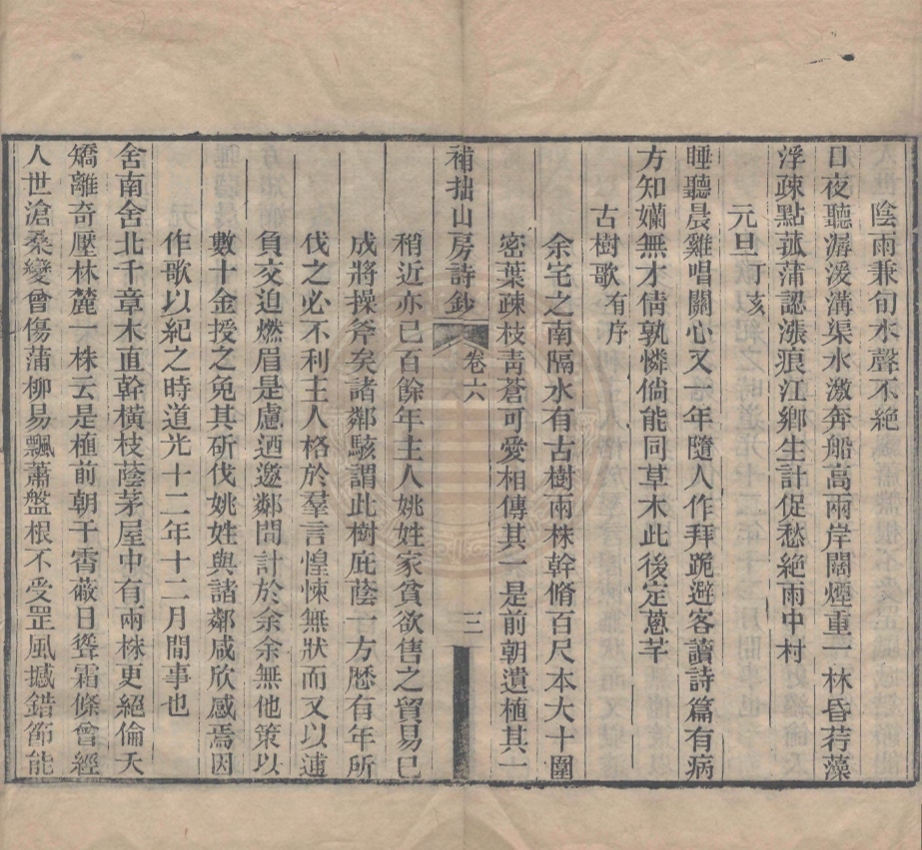 陰雨兼旬水聲不絶
日夜聽潺湲溝渠水激奔船高兩岸闊煙重一林昏荇藻
浮疎點菰蒲認漲痕江鄉生計促愁絶雨中村
元旦丁亥
睡聽晨雞唱關心又一年隨人作拜跪避客讀詩篇有病
方知嬾無才倩孰憐倘能同草木此後定蔥芊
古樹歌有序
余宅之南隔水有古樹兩株幹脩百尺本大十圍
密葉疎枝靑蒼可愛相傳其一是前朝遺植其一
補拙山房詩鈔 卷六 三
稍近亦已百餘年主人姚姓家貧欲售之貿易已
成將操斧矣諸鄰駭謂此樹庇蔭一方厯有年所
伐之必不利主人格於羣言惶悚無狀而又以逋
負交迫燃眉是慮迺邀鄰問計於余余無他策以
數十金授之免其斫伐姚姓與諸鄰咸欣感焉因
作歌以紀之時道光十二年十二月間事也
舍南舍北千章木直幹橫枝蔭茅屋中有兩株更絕倫天
矯離奇壓林麓一株云是植前朝干霄蔽日聳霜條曾經
人世滄桑變曾傷蒲柳易飄蕭盤根不受罡風撼錯節能